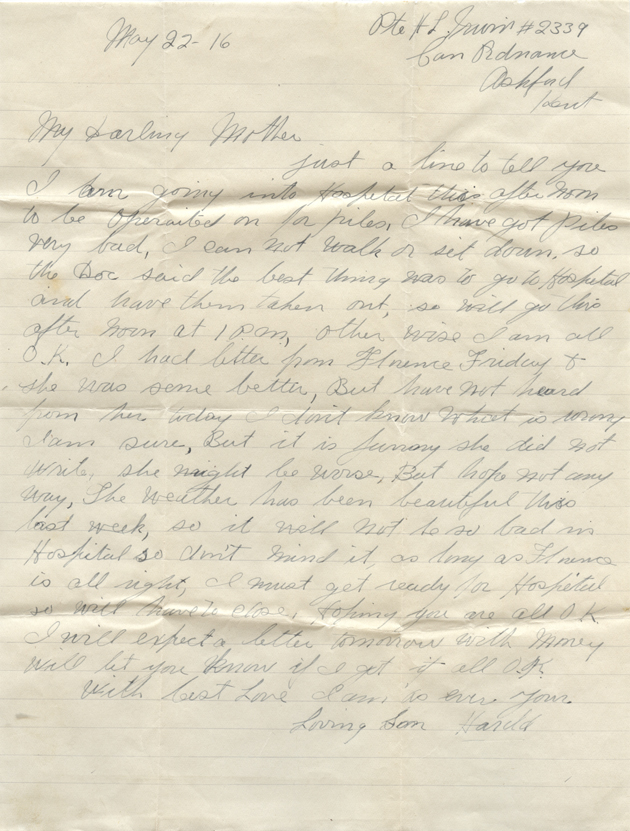 May 22-16
Pte H L Irwin #2339
Can Ordnance
Ashford
Kent
My Darling Mother
just a line to tell you
I am going into Hospital this after Noon
to be operated on for piles, I have got Piles
very bad, I can not walk or sit down, so
the Doc said the best thing was to go to Hospital
and have them taken out, so will go this
after Noon at 1 P.M, other wise I am all
O.K. I had letter from Florence Friday &
she was some better, But have not heard
from her today I don't know what is wrong
I am sure, But it is funny she did not
write, she might be worse, But hope not any
way, The weather has been beautiful this
last week, so it will not be so bad in
Hospital so don't mind it, as long as Florence
is all right, I must get ready for Hospital
so will have to close, Hoping you are all O.K
I will expect a letter tomorrow with Money
will let you know if I get it all O.K.
With best Love I am as ever your
Loving Son Harold